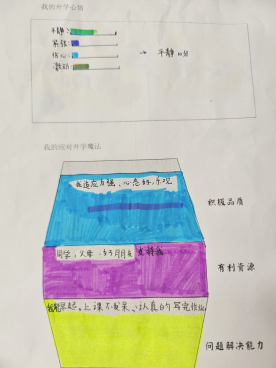 我的开学心情
平静：
紧张：
信心：
激动：
→ 平静 

我的应对开学魔法
我适应力强、心态好、乐观
积极品质
同学、父母、好朋友 支持我
有利资源
早起。上课不发呆、认真的写完作业
问题解决能力